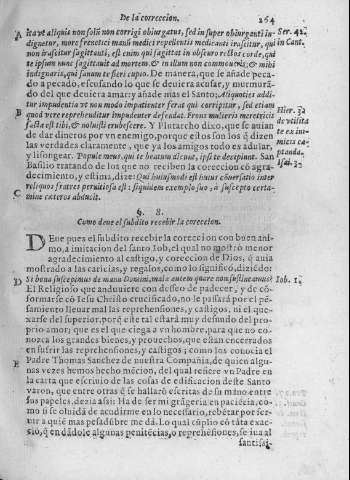 De la correccion.
264
A ita vt aliquis non solũ non corrigi obiurgatus, sed in super obiurganti in-
dignetur, more frenetici manũ medici repellentis medicanti irascitur, qui
non irascitur sagittanti, est enim qui sagittat in obscuro rectos corde, qui
te ipsum nunc sagittauit ad mortem. & in illum non commoueris; & mihi
indignaris, qui sanum te fieri cupio. De manera, que le añade peca-
do a pecado, escusando lo que se deuiera acusar, y murmurã-
do del que deuiera amar; y añade mas el Santo, Aliquoties addi-
tur impudentia vt non modo impatienter ferat qui corripitur, sed etiam
B quod vere reprehenditur impudenter defendat. Frons mulieris meretricis
facta est tibi, & noluisti erubescere. Y Plutarcho dixo, que se auian
de dar dineros por vn enemigo, porque estos son los q̃ dizen
las verdades claramente, que ya los amigos todo es adular,
y lisongear. Popule meus, qui te beatum dicunt, ipsi te decipiunt. San
Basilio tratando de los que no reciben la correccion cõ agra-
decimiento, y estima, dize: Qui huiusmodi est huius cõuersatio inter
reliquos fratres pernitiosa est: siquidem exemplo suo, à suscepto certa-
C mine cæteros abducit.
Ser. 42.
in Cant.
Hier. 3.
de vtilita
te ex ini-
micis ca-
ptanda.
Isai. 3.
§. 8.
Como deue el subdito recebir la coreccion.
DEue pues el subdito recebir la coreccion con buen ani-
mo, a imitacion del santo Iob, el qual no mostrò menor
agradecimiento al castigo, y coreccion de Dios, q̃ auia
mostrado a las caricias, y regalos, como lo significò, diziẽdo:
D Si bona suscepimus de manu Domini, mala autem quare non sustineamus?
El Religioso que anduuiere con desseo de padecer, y de cõ-
formarse cõ Iesu Christo crucificado, no le passarà por el pẽ-
samiento lleuar mal las reprehensiones, y castigos, ni el que-
xarse del superior, porq̃ este tal estarà muy desnudo del pro-
prio amor; que es el que ciega a vn hombre, para que no co-
nozca los grandes bienes, y prouechos, que estan encerrados
en sufrir las reprehensiones, y castigos; como los conocia el
E Padre Thomas Sanchez de nuestra Compañia, de quien algu-
nas vezes hemos hecho mẽcion, del qual refiere vn Padre en
la carta que escriuio de las cosas de edificacion deste Santo
varon, que entre otras q̃ se hallarõ escritas de su mano entre
sus papeles, dezia assi: Ha de ser mi grãgeria en paciẽcia, co-
mo si se oluidà de acudirme en lo necessario, rebẽtar por ser-
uir a quiẽ mas pesadũbre me dà. Lo qual cũplio cõ tãta exac-
ciõ, q̃ en dãdole algunas penitẽcias, o reprehẽsiones, se iua al
santissi-
Iob. 1.